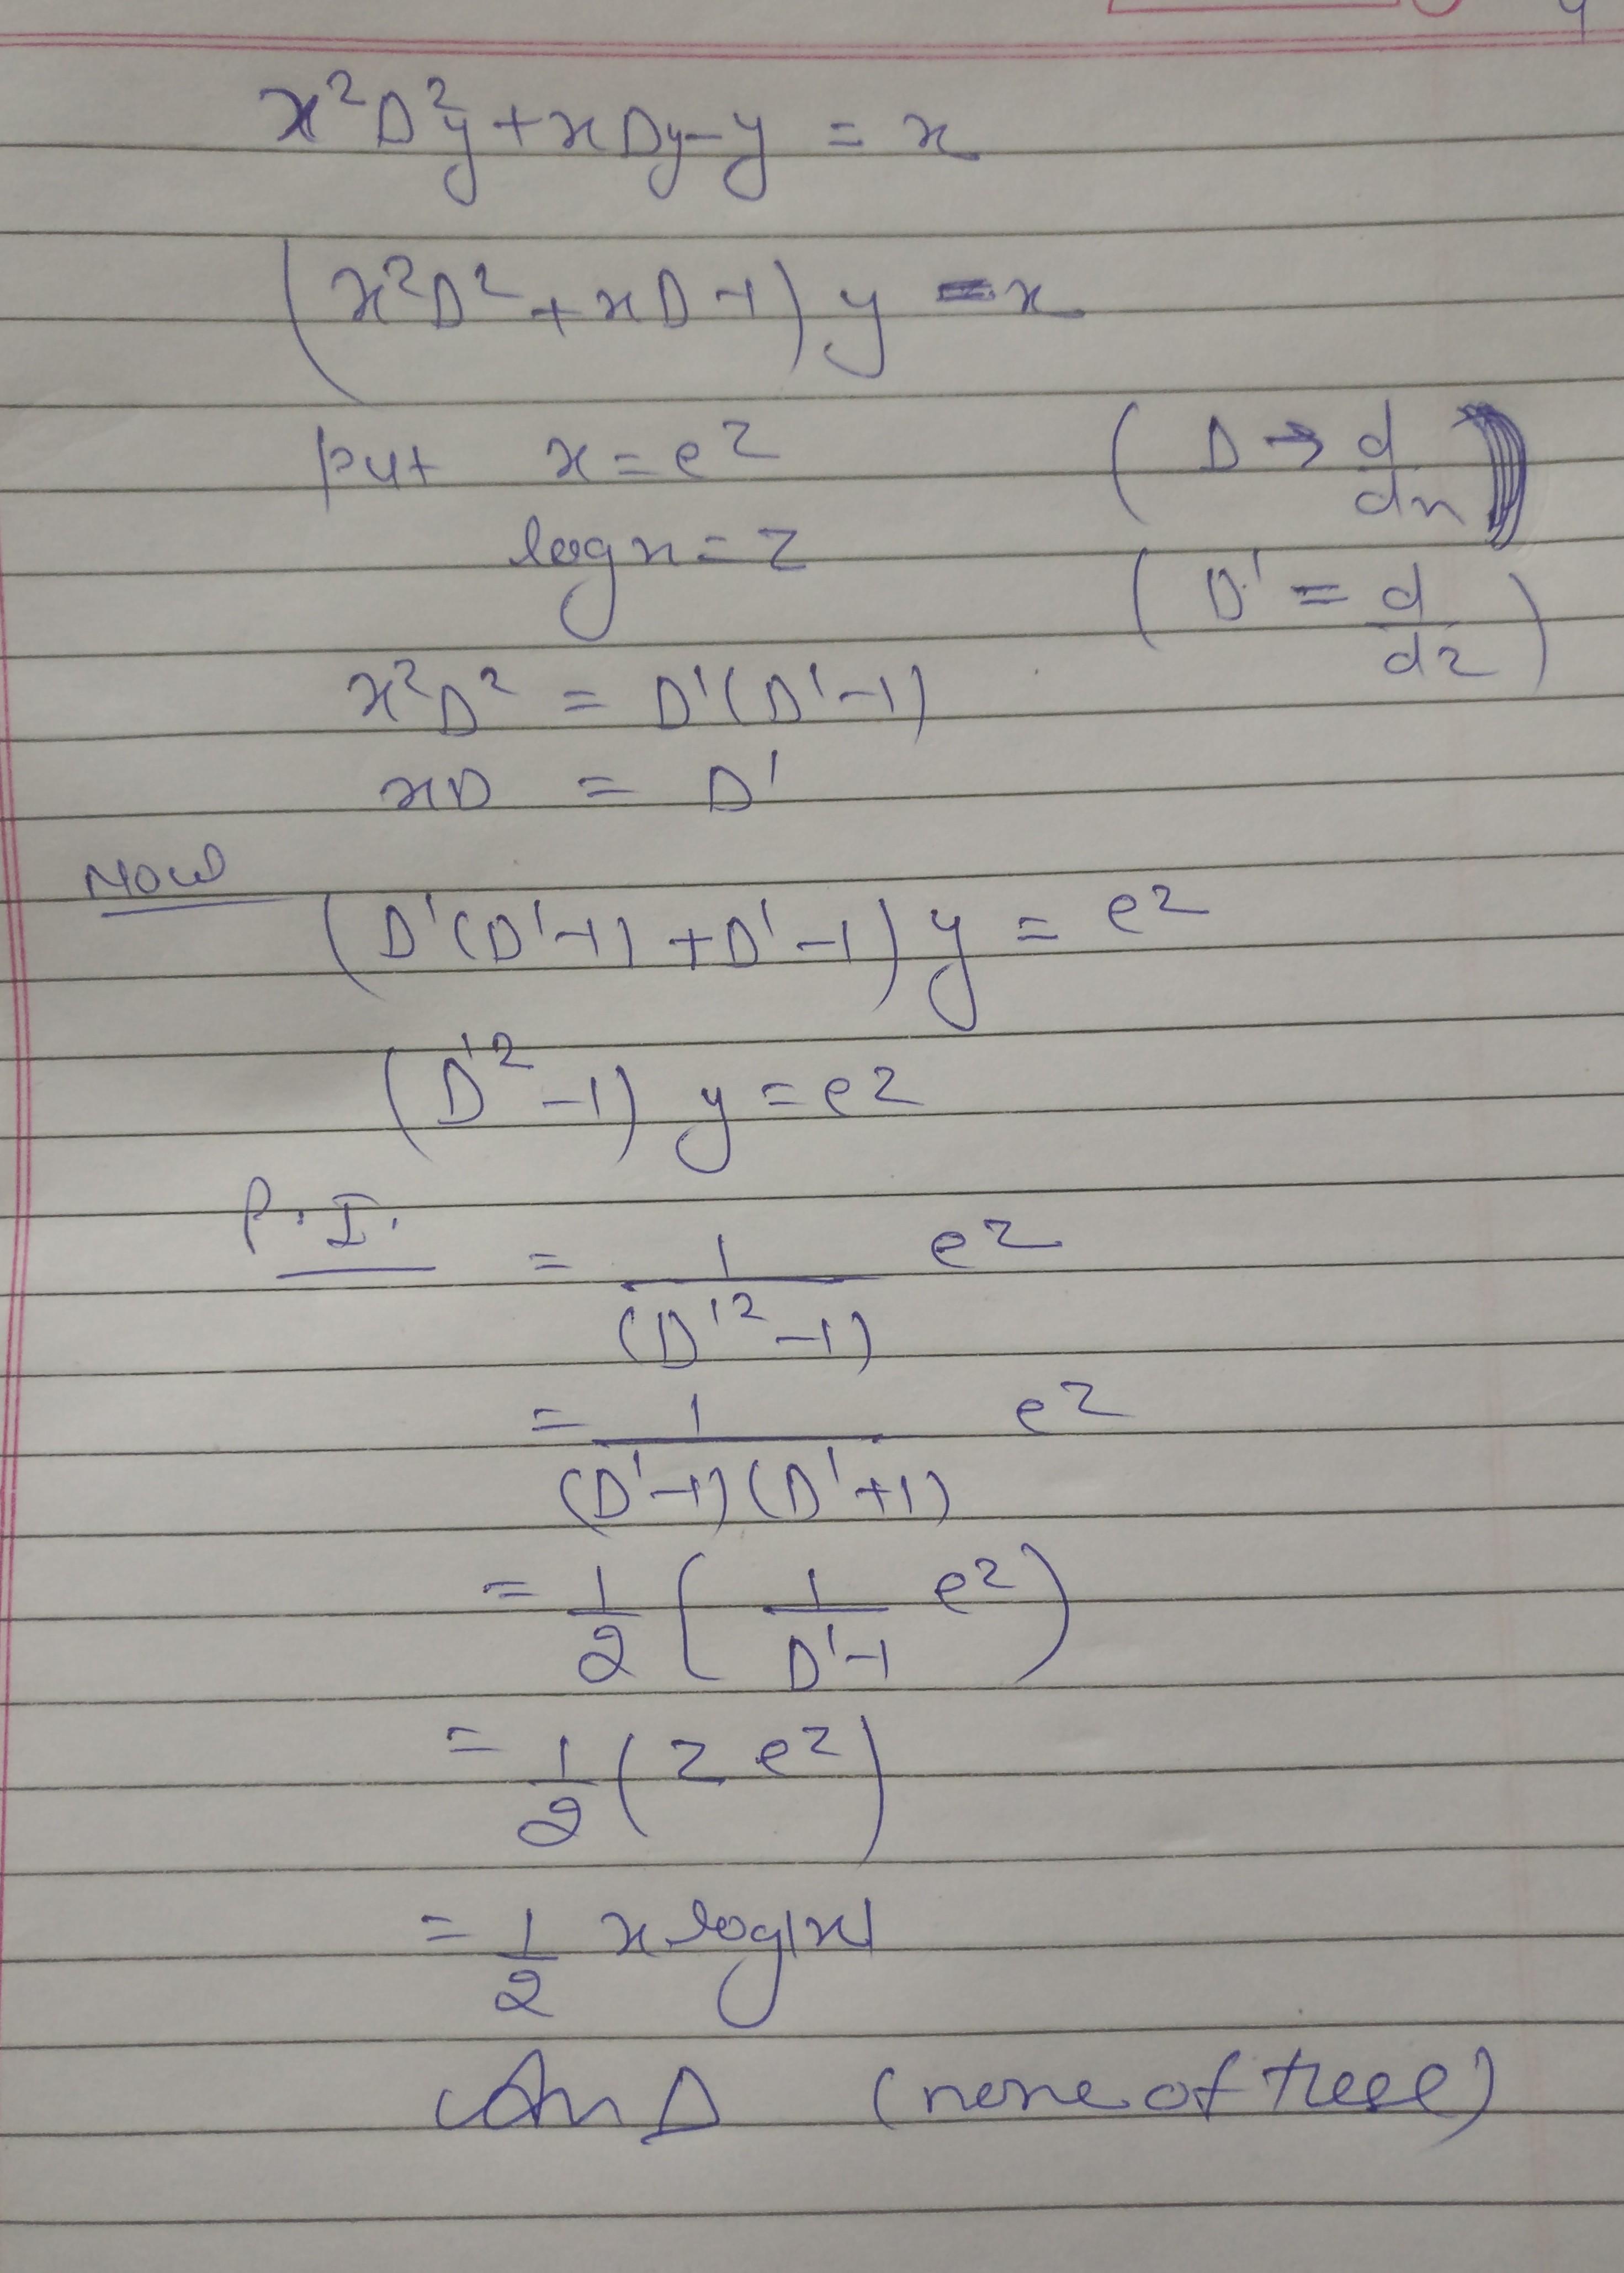 x²D²y + xDy - y = x
(x²D² + xD - 1) y = x
put x = e^z (D → d/dx)
log x = z (D' = d/dz)
x²D² = D'(D'-1)
xD = D'
Now
(D'(D'-1) + D' - 1) y = e^z
(D'² - 1) y = e^z
P.I. = 1/(D'² - 1) e^z
= 1/((D'-1)(D'+1)) e^z
= 1/2 (1/(D'-1) e^z)
= 1/2 (z e^z)
= 1/2 x log|x|
Ans D (none of these)